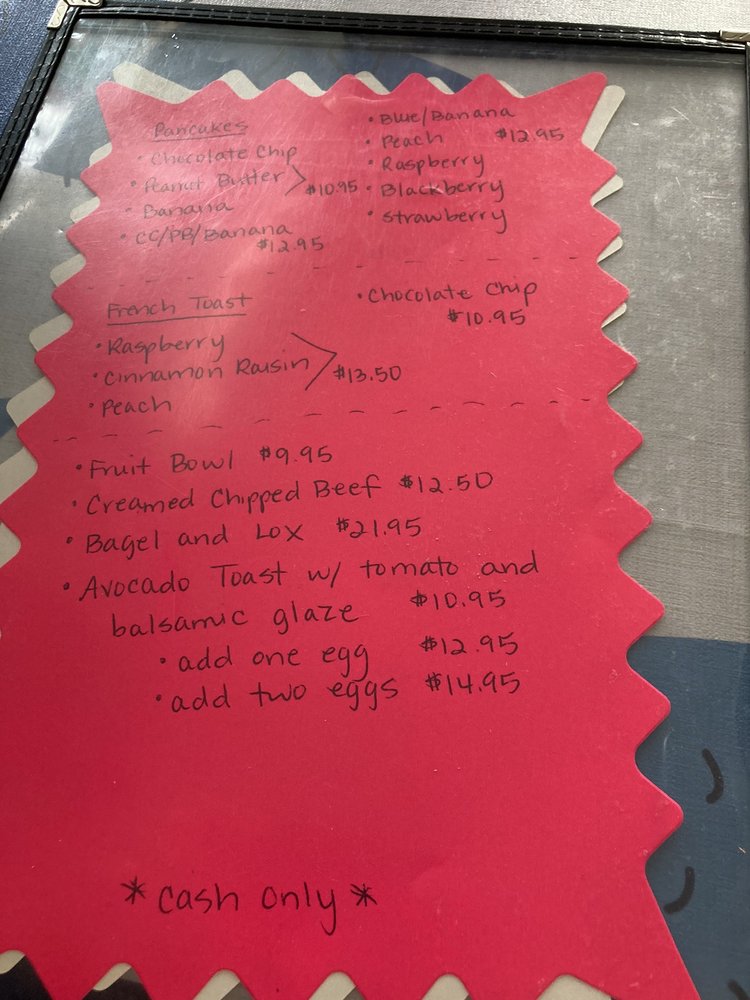 Pancakes
• Chocolate Chip
• Peanut Butter > $10.95
• Banana
• CC/PB/Banana
$12.95
• Blue/Banana
• Peach $12.95
• Raspberry
• Blackberry
• Strawberry
French Toast
• Raspberry
• Cinnamon Raisin > $13.50
• Peach
• Chocolate Chip
$10.95
• Fruit Bowl $9.95
• Creamed Chipped Beef $12.50
• Bagel and Lox $21.95
• Avocado Toast w/ tomato and
balsamic glaze $10.95
• add one egg $12.95
• add two eggs $14.95
* cash only *